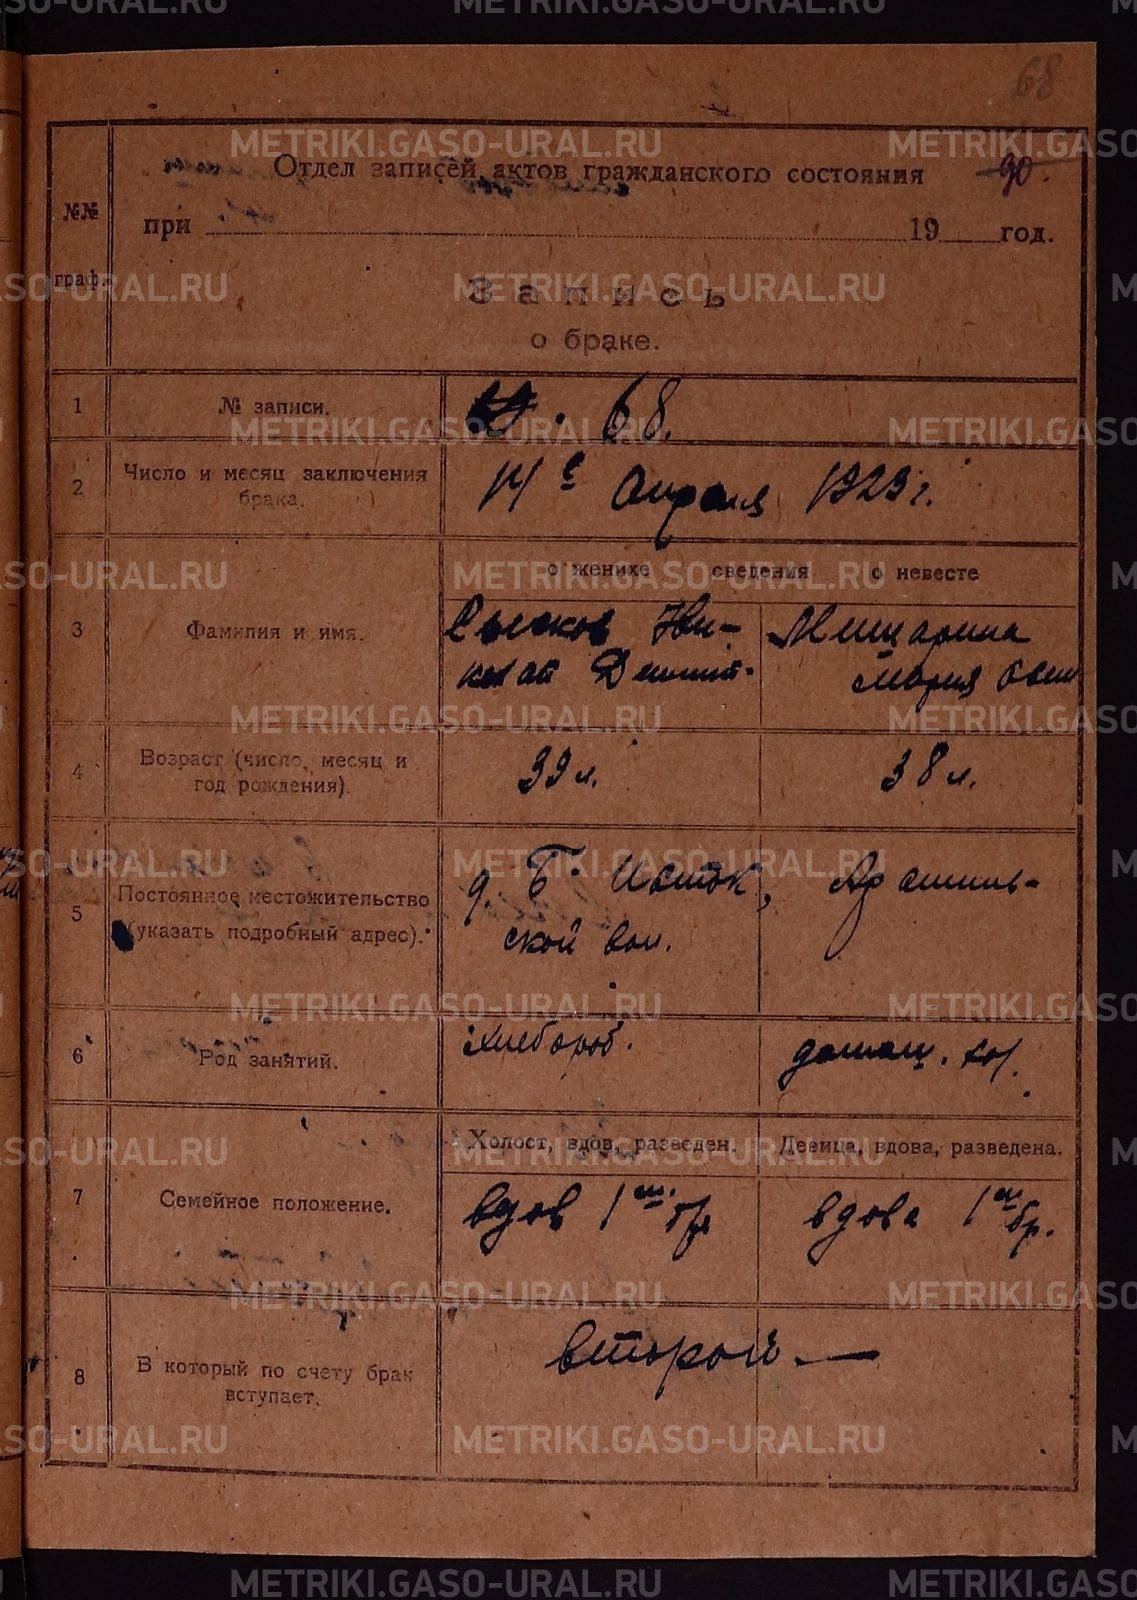 68
Отдел записей актов гражданского состояния
90.
№№ граф.
при 19 год.
Запись
о браке.
1 № записи. 68.
2 Число и месяц заключения брака. 14го Апреля 1923 г.
о женихе сведения о невесте
3 Фамилия и имя.
Сысков Ни- Мещарина
колай Дмит. Мария Осип
4 Возраст (число, месяц и год рождения). 39 л. 38 л.
5 Постоянное местожительство (указать подробный адрес).
д. Б. Исток, Арамиль-
ской вол.
6 Род занятий. Хлебороб. домаш. хоз.
Холост, вдов, разведен. Девица, вдова, разведена.
7 Семейное положение. вдов 1м бр вдова 1м бр.
8 В который по счету брак вступает. второй —
METRIKI.GASO-URAL.RU